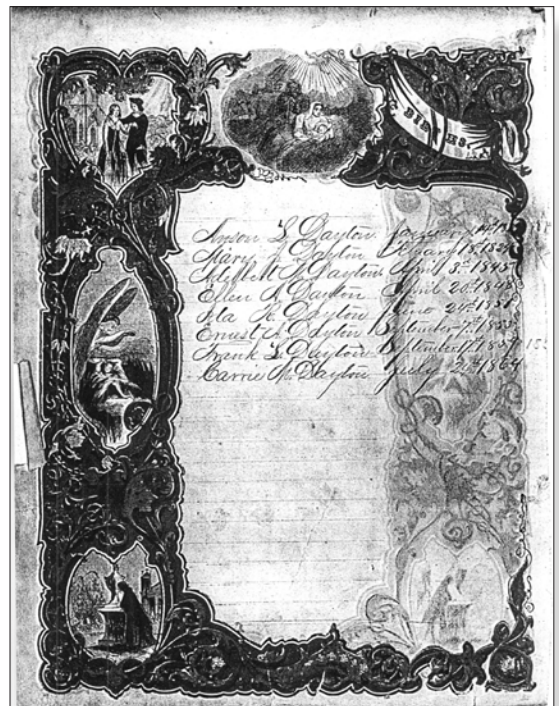 BIRTHS.
Anson L. Dayton January 14th
Mary Dayton 18
Adelbert Dayton April 3d 1845
Ellen A. Dayton April 20th 1848
Ida Dayton June 24th 1851
Ernest A. Dayton September 7th 1855
Frank L. Dayton September 17th 1857
Carrie M. Dayton July 20th 1864